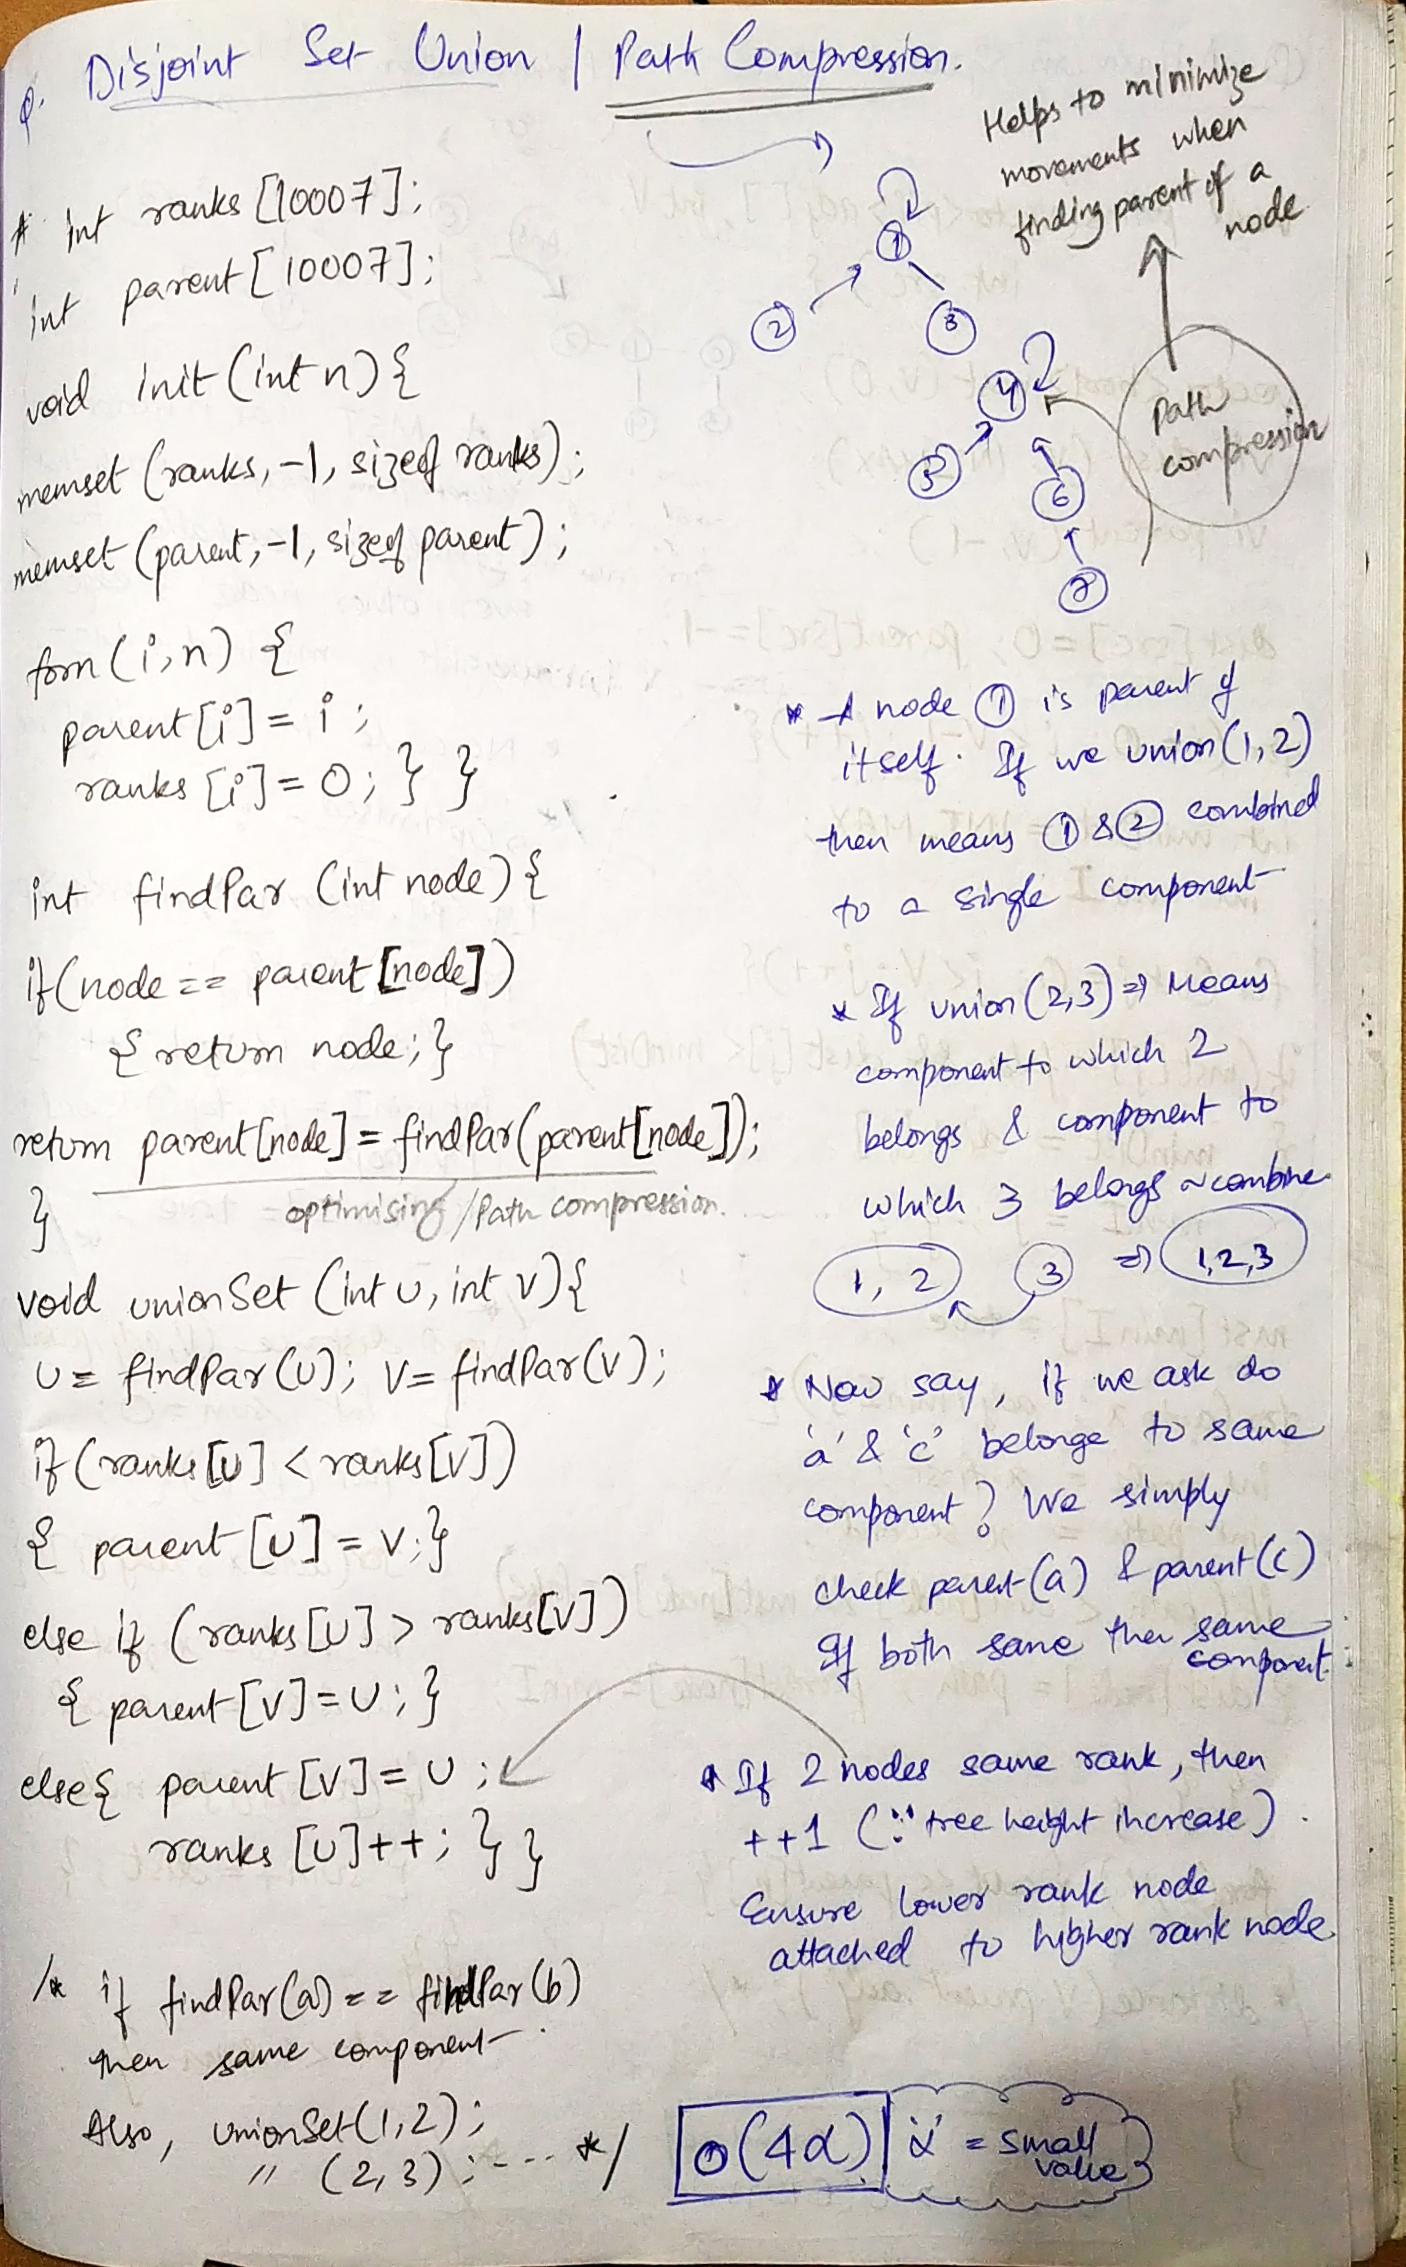 Q. Disjoint Set Union | Path Compression.
Helps to minimize
movements when
finding parent of a
node
* int ranks [10007];
int parent [10007];
void init (int n) {
memset (ranks, -1, sizeof ranks);
memset (parent, -1, sizeof parent);
forn (i,n) {
parent [i] = i ;
ranks [i] = 0; } }
int findPar (int node) {
if (node == parent [node])
{ return node; }
return parent [node] = findPar (parent [node]);
optimising / Path compression.
}
void unionSet (int u, int v) {
u = findPar (u); v = findPar (v);
if (ranks [u] < ranks [v])
{ parent [u] = v; }
else if (ranks [u] > ranks [v])
{ parent [v] = u; }
else { parent [v] = u ;
ranks [u]++; } }
/* if findPar (a) == findPar (b)
then same component.
Also, unionSet (1,2);
" (2,3); --- */
1
2
3
4
5
6
7
Path
compression
* A node 1 is parent of
itself. If we union (1,2)
then means 1 & 2 combined
to a single component
* If union (2,3) => Means
component to which 2
belongs & component to
which 3 belongs ~ combine
1, 2 3 => 1,2,3
* Now say, if we ask do
'a' & 'c' belongs to same
component? We simply
check parent (a) & parent (c)
If both same then same
component.
* If 2 nodes same rank, then
++1 (∵ tree height increase).
Ensure lower rank node
attached to higher rank node
O(4α) 'α' = small
value